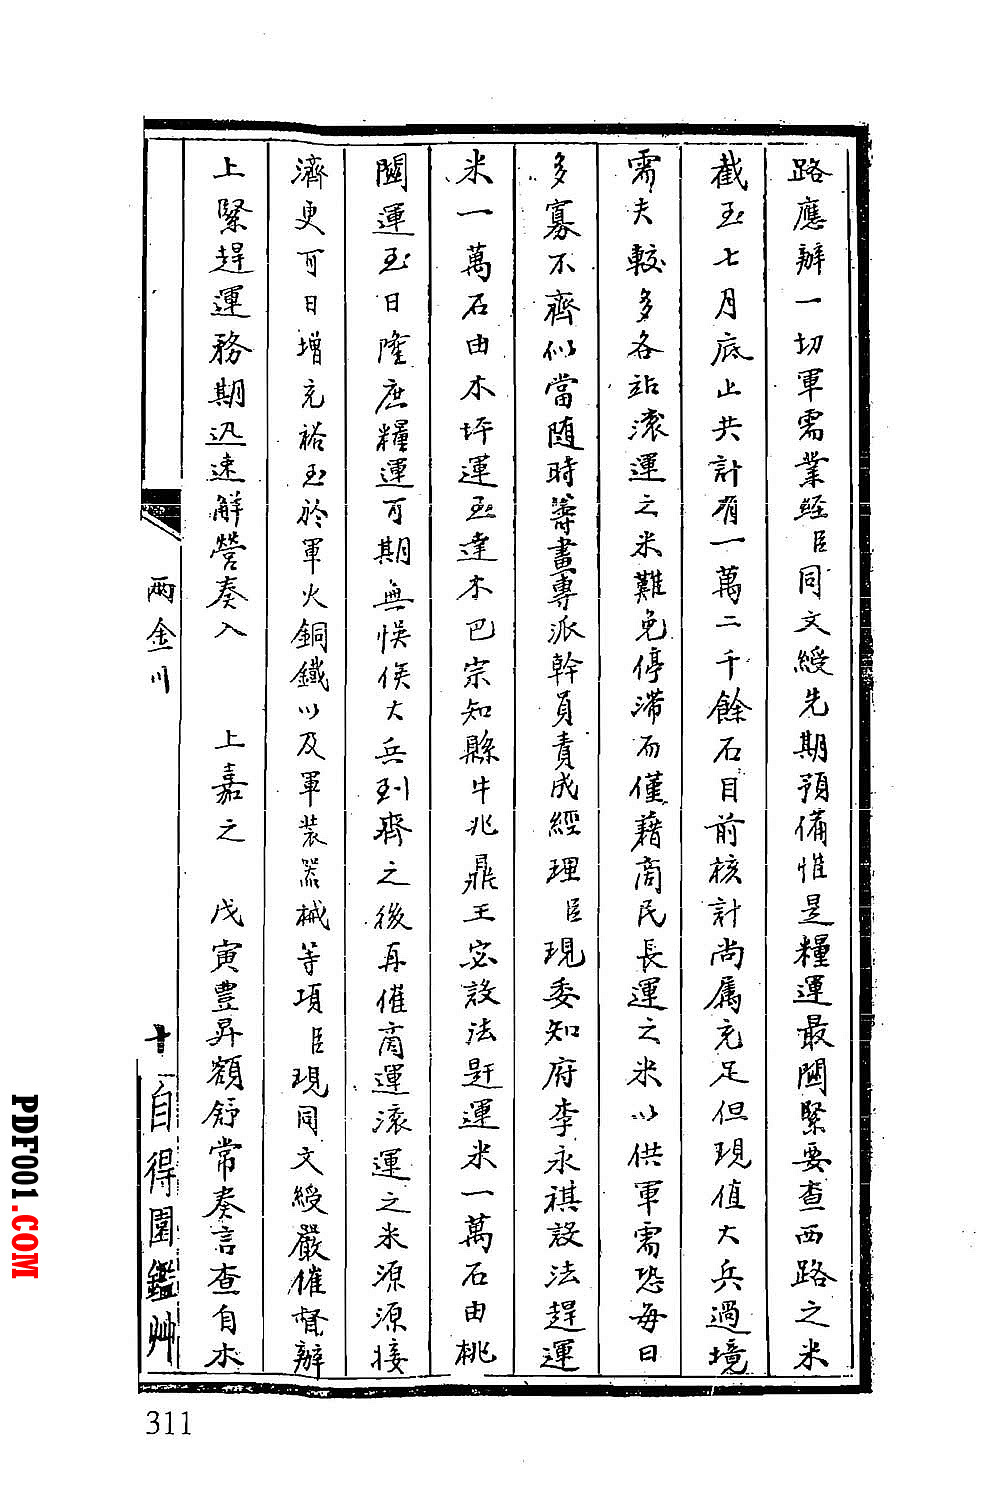 路應辦一切軍需業經臣同文綬先期預備惟是糧運最關緊要查西路之米
截至七月底止共計有一萬二千餘石目前核計尚屬充足但現值大兵過境
需夫較多各站滚運之米難免停滯而僅藉商民長運之米以供軍需恐每日
多寡不齊似當隨時籌畫專派幹員責成經理臣現委知府李永祺設法趕運
米一萬石由木坪運至達木巴宗知縣牛兆鼎王宓設法趕運米一萬石由桃
關運至日隆庶糧運可期無悞俟大兵到齊之後再催商運滚運之米源源接
濟更可日增充裕至於軍火銅鐵以及軍装器械等項臣現同文綬嚴催督辦
上緊趕運務期迅速解營奏入 上嘉之 戊寅豊昇額舒常奏言查自木
兩金川
十
自得園鑑艸
311
PDF001.COM